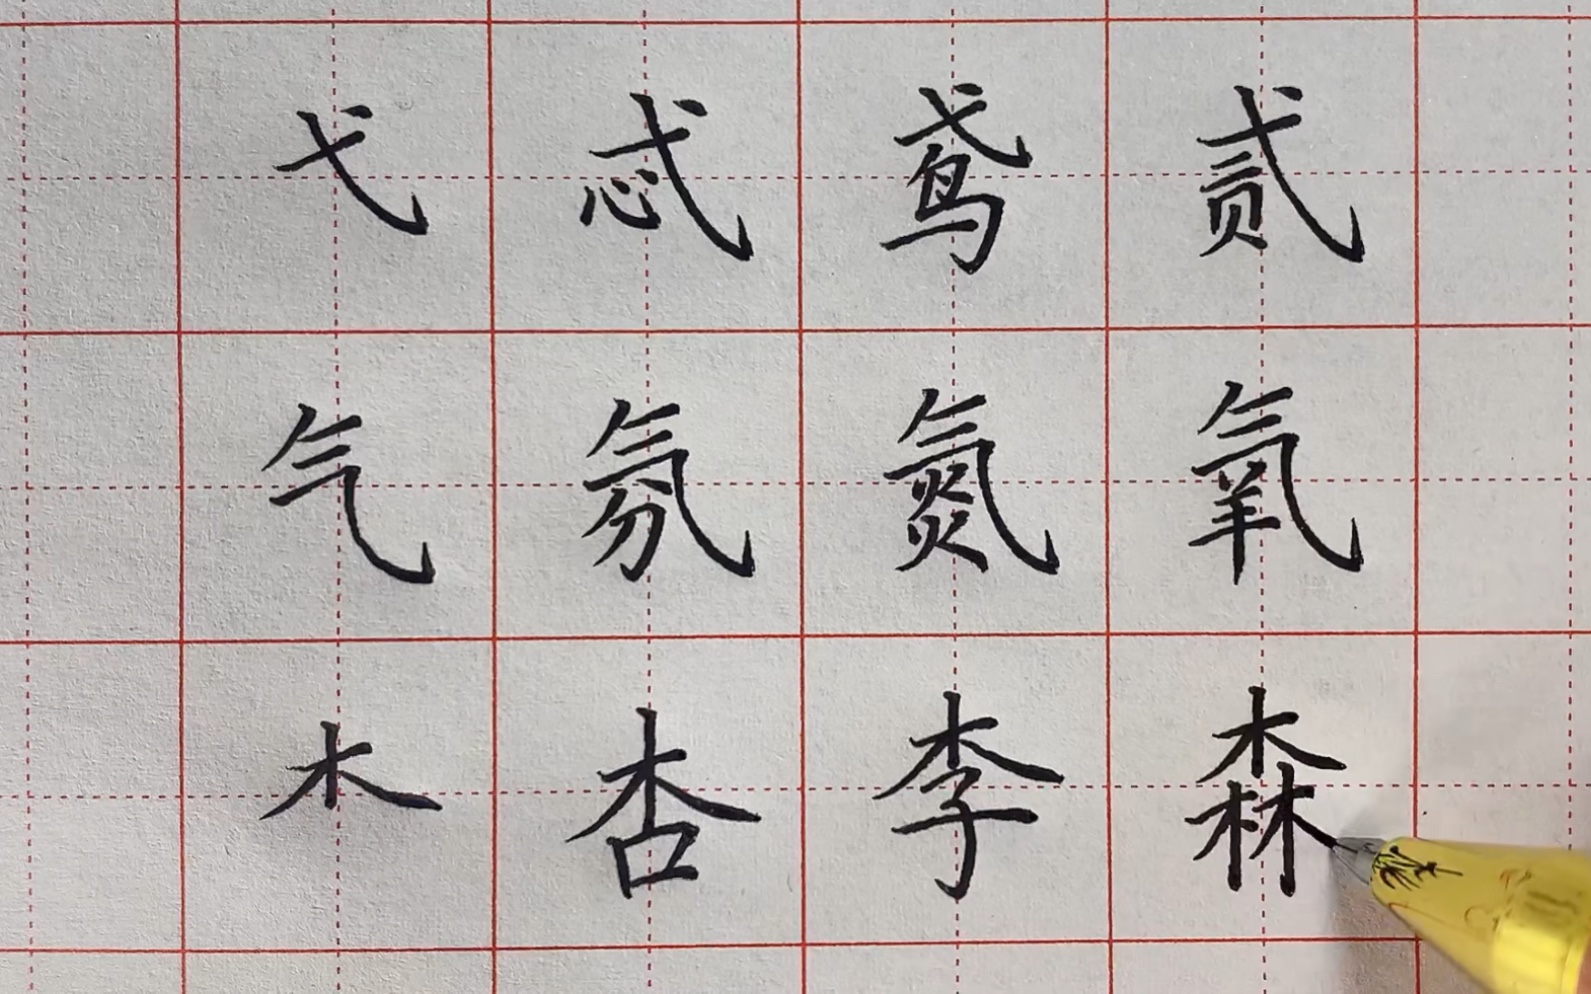 弋 忒 鸢 贰
气 氛 氮 氧
木 杏 李 森